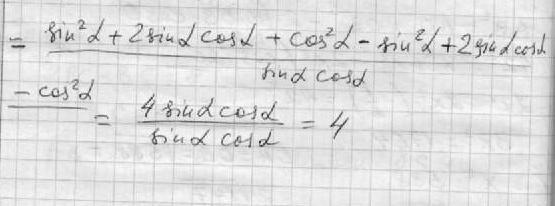 = (sin²α + 2sinα cosα + cos²α - sin²α + 2sinα cosα
sinα cosα
- cos²α) = 4 sinα cosα / sinα cosα = 4